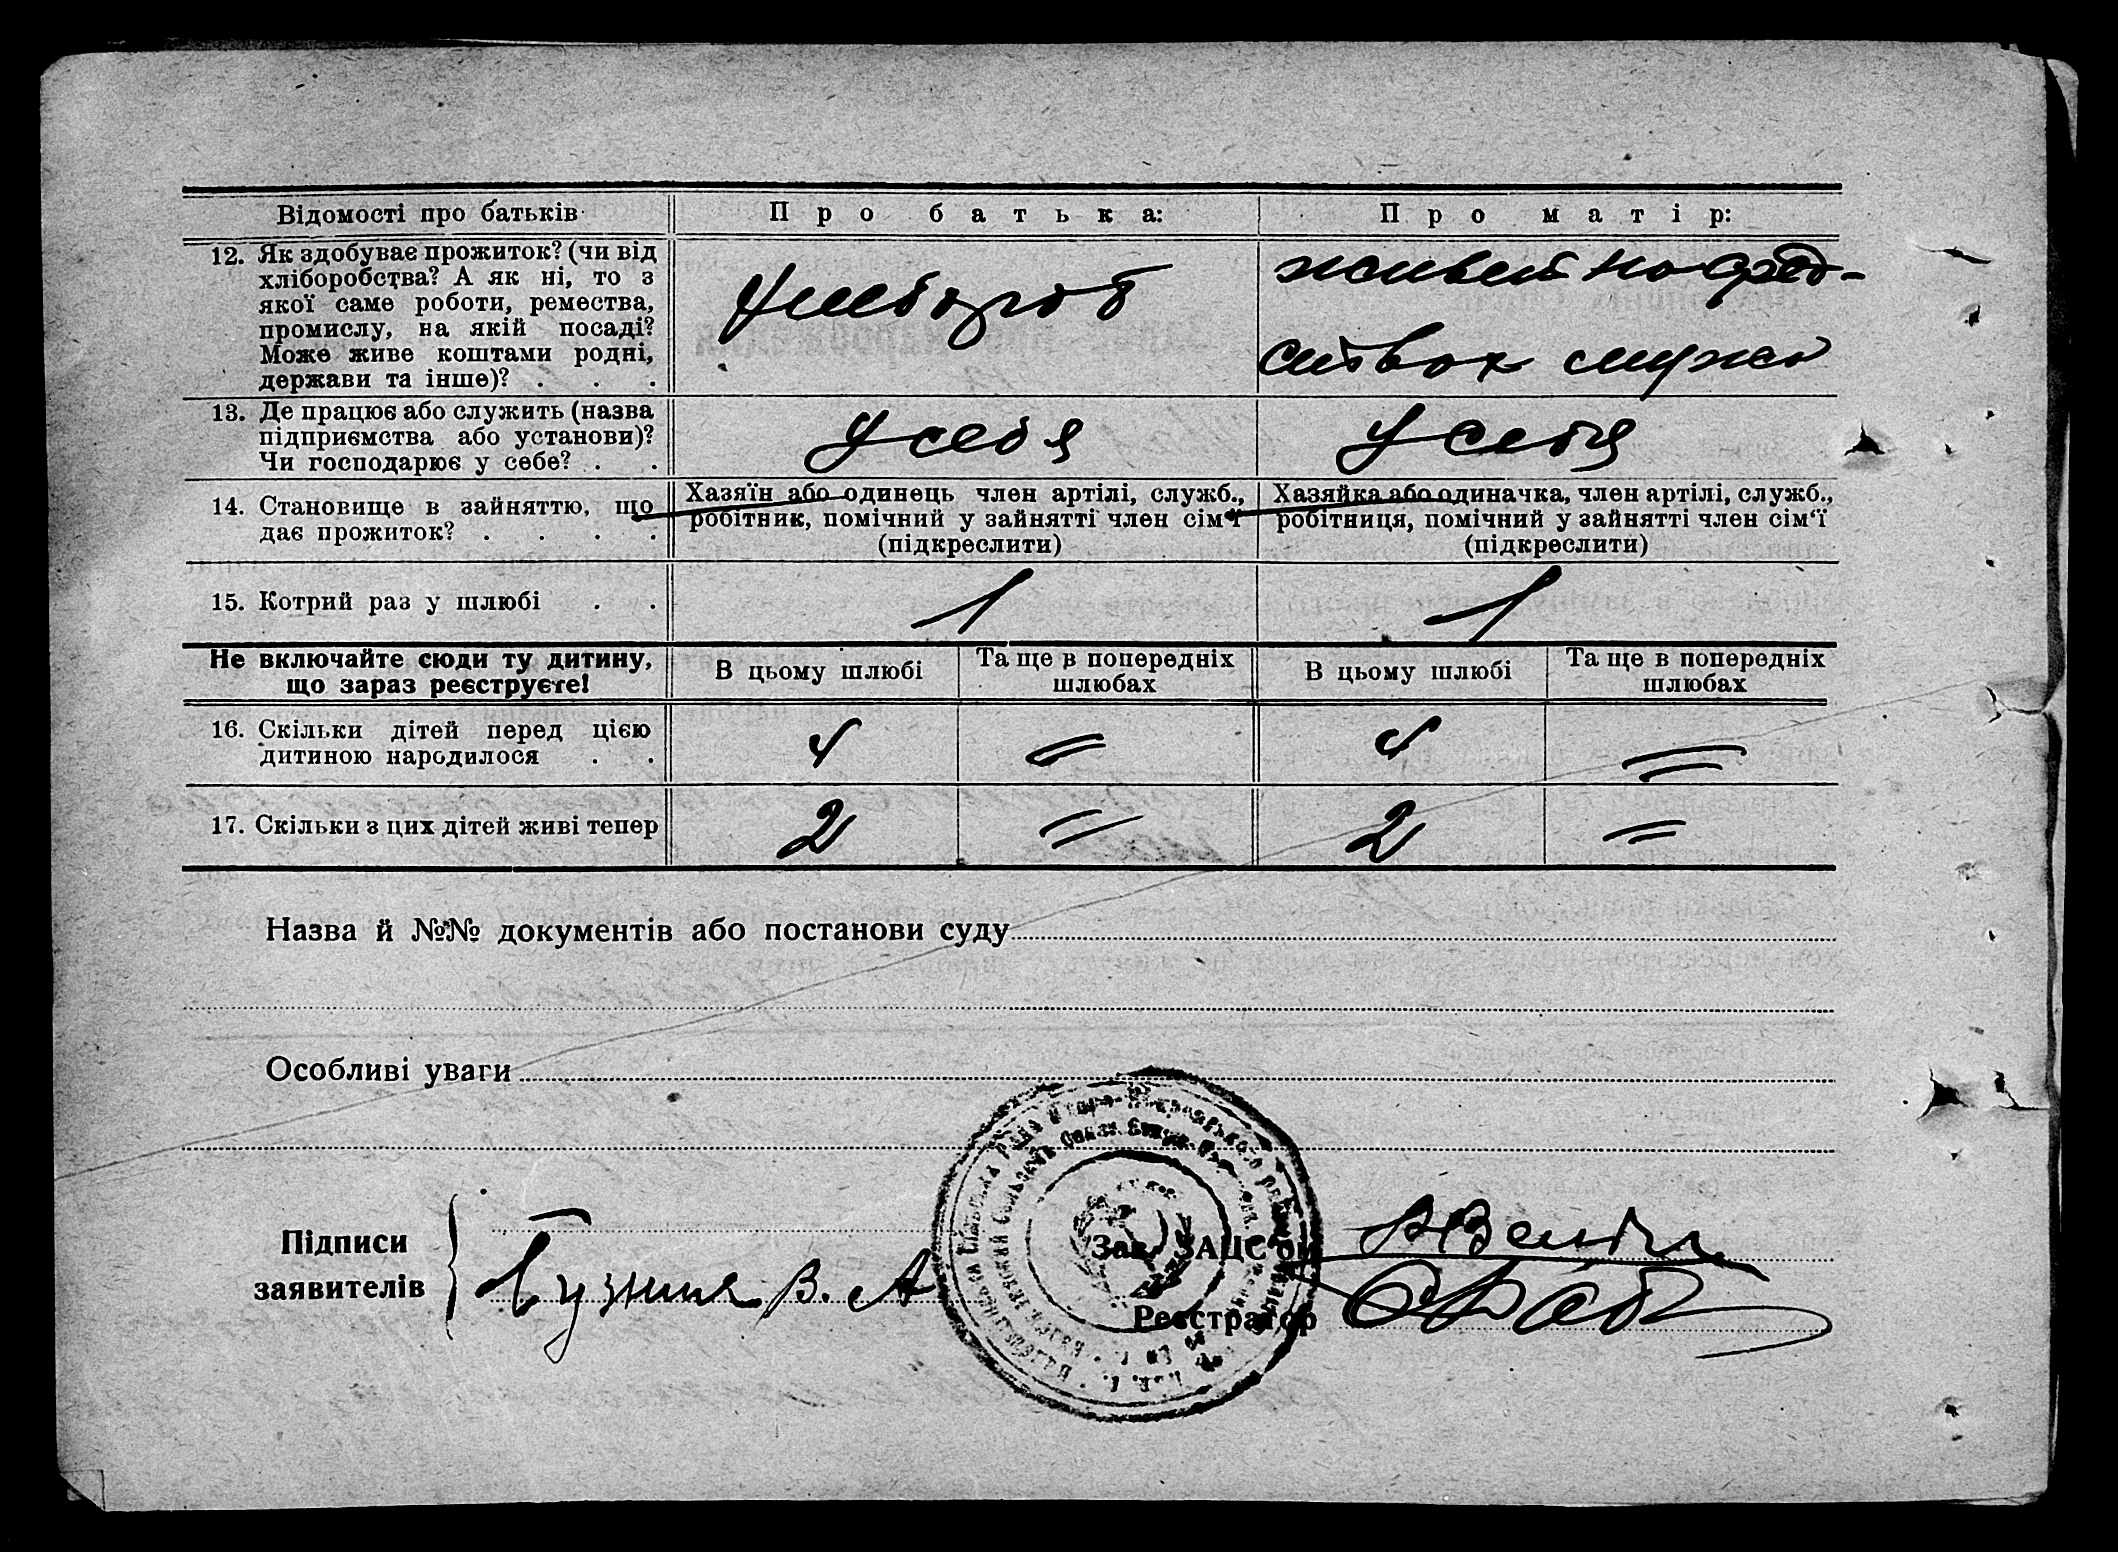 Відомості про батьків
Про батька:
Про матір:
12. Як здобуває прожиток? (чи від
хліборобства? А як ні, то з
якої саме роботи, ремества,
промислу, на якій посаді?
Може живе коштами родні,
держави та інше)? . . .
Хлебороб
живет на сред-
ствах мужа
13. Де працює або служить (назва
підприємства або установи)?
Чи господарює у себе? . .
У себя
У себя
14. Становище в зайняттю, що
дає прожиток? . . . .
Хазяїн або одинець член артілі, служб.,
робітник, помічний у зайнятті член сім'ї
(підкреслити)
Хазяйка або одиначка, член артілі, служб.,
робітниця, помічний у зайнятті член сім'ї
(підкреслити)
15. Котрий раз у шлюбі . .
1
1
Не включайте сюди ту дитину,
що зараз реєструєте!
В цьому шлюбі
Та ще в попередніх
шлюбах
В цьому шлюбі
Та ще в попередніх
шлюбах
16. Скільки дітей перед цією
дитиною народилося . .
4
=
4
=
17. Скільки з цих дітей живі тепер
2
=
2
=
Назва й №№ документів або постанови суду
Особливі уваги
Підписи
заявителів
В. А
Зав. ЗАЦС'ом
Реєстратор